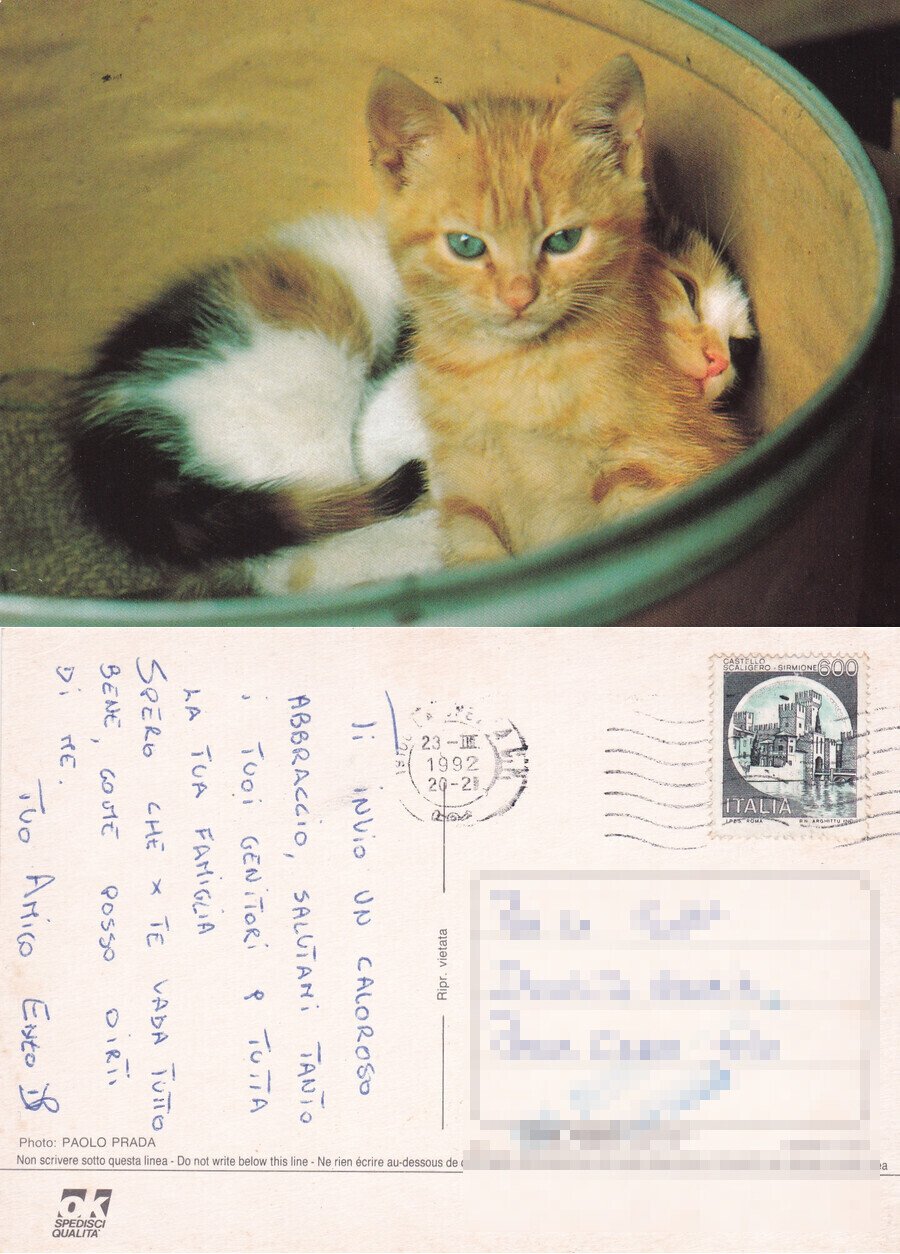 Ti invio un caloroso
abbraccio, salutami tanto
i tuoi genitori e tutta
la tua famiglia
Spero che x te vada tutto
bene, come posso dirti
di me.
Tuo Amico Enzo
23-III
1992
CASTELLO
SCALIGERO - SIRMIONE 600
ITALIA
I.P.Z.S. ROMA
Ripr. vietata
Photo: PAOLO PRADA
Non scrivere sotto questa linea - Do not write below this line - Ne rien écrire au-dessous de
ok
SPEDISCI
QUALITA'